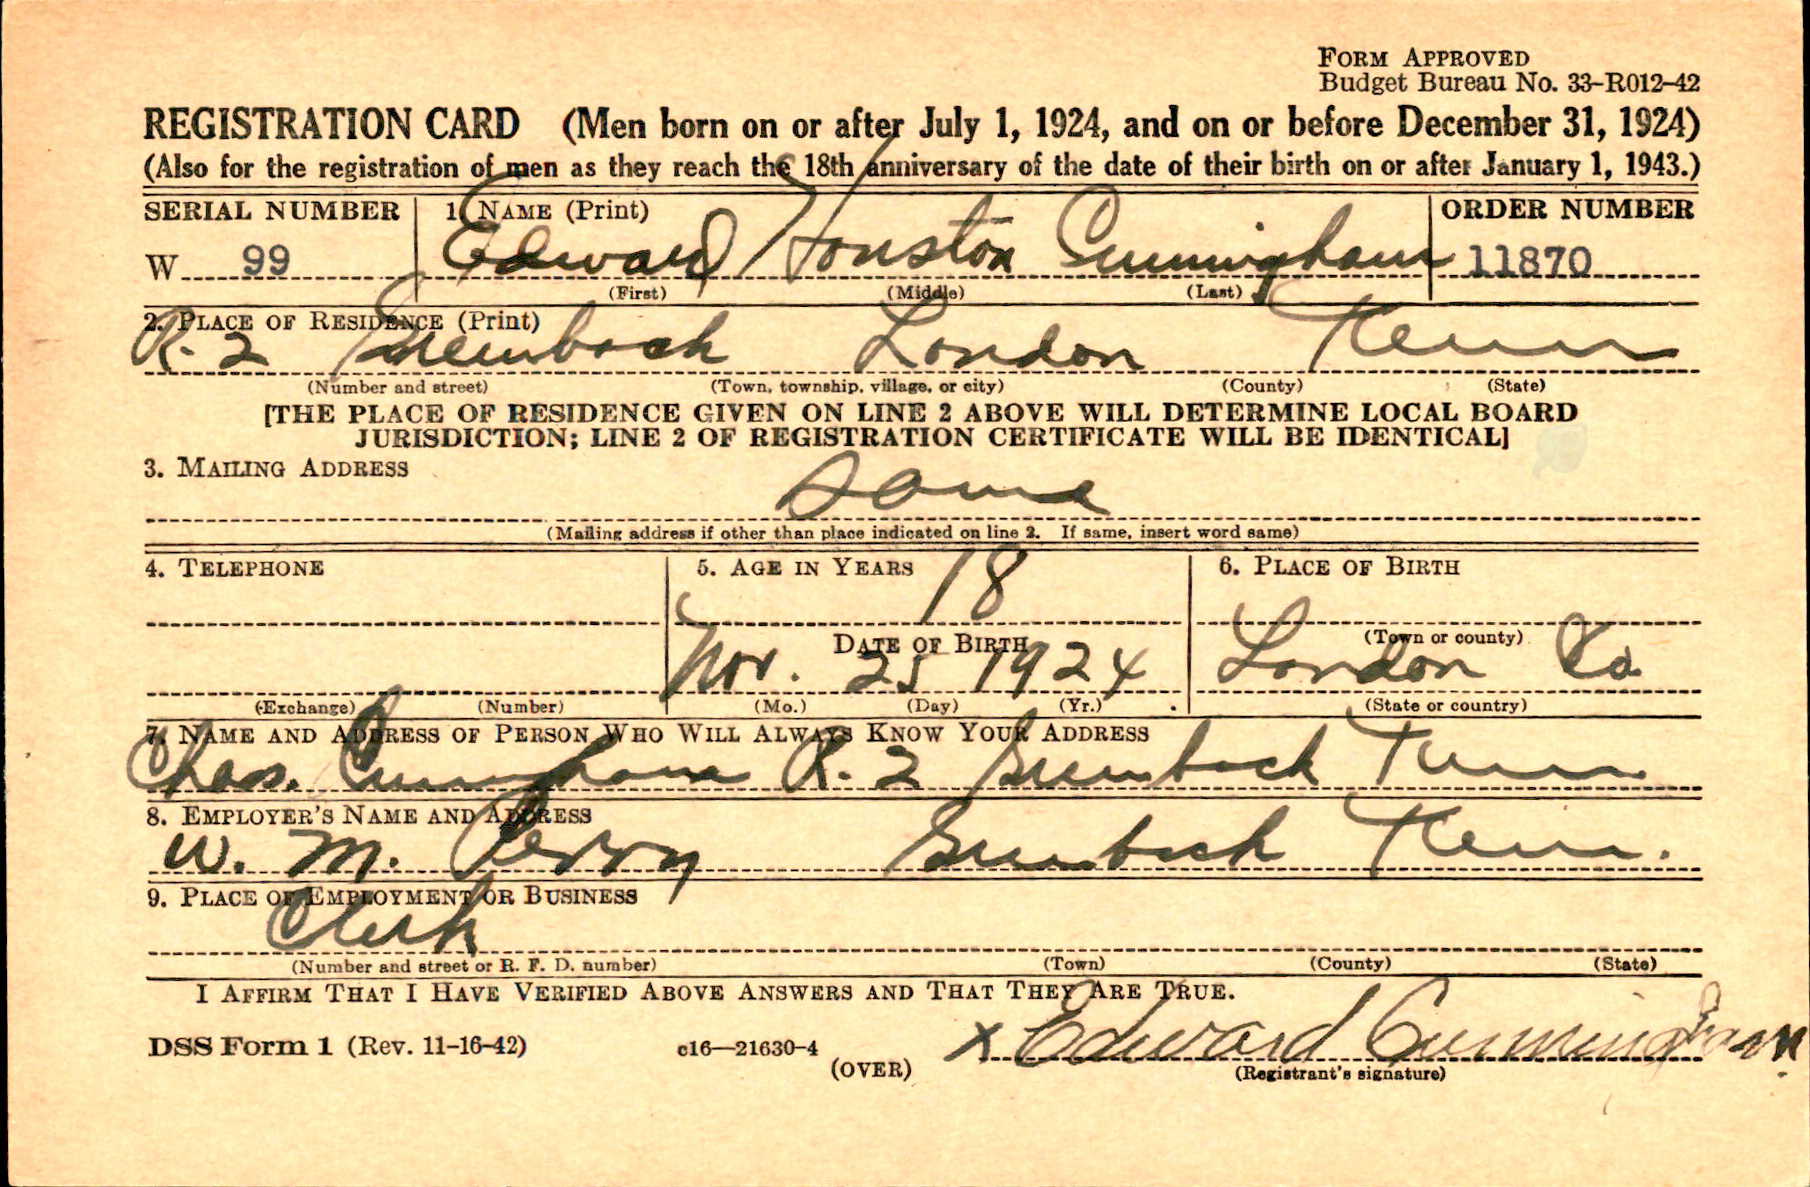 FORM APPROVED
Budget Bureau No. 33-R012-42
REGISTRATION CARD (Men born on or after July 1, 1924, and on or before December 31, 1924)
(Also for the registration of men as they reach the 18th anniversary of the date of their birth on or after January 1, 1943.)
SERIAL NUMBER 1. NAME (Print) ORDER NUMBER
W 99 Edward Houston Cunningham 11870
(First) (Middle) (Last)
2. PLACE OF RESIDENCE (Print)
R-2 Greenback London Tenn
(Number and street) (Town, township, village, or city) (County) (State)
[THE PLACE OF RESIDENCE GIVEN ON LINE 2 ABOVE WILL DETERMINE LOCAL BOARD
JURISDICTION; LINE 2 OF REGISTRATION CERTIFICATE WILL BE IDENTICAL]
3. MAILING ADDRESS
Same
(Mailing address if other than place indicated on line 2. If same, insert word same)
4. TELEPHONE 5. AGE IN YEARS 18 6. PLACE OF BIRTH
DATE OF BIRTH (Town or county)
Nov. 25 1924 London Co.
(Exchange) (Number) (Mo.) (Day) (Yr.) (State or country)
7. NAME AND ADDRESS OF PERSON WHO WILL ALWAYS KNOW YOUR ADDRESS
Chas. Cunningham R-2 Greenback Tenn.
8. EMPLOYER'S NAME AND ADDRESS
W. M. Perry Greenback Tenn.
9. PLACE OF EMPLOYMENT OR BUSINESS
Clerk
(Number and street or R. F. D. number) (Town) (County) (State)
I AFFIRM THAT I HAVE VERIFIED ABOVE ANSWERS AND THAT THEY ARE TRUE.
DSS Form 1 (Rev. 11-16-42) c16—21630-4 (OVER) X Edward Cunningham
(Registrant's signature)